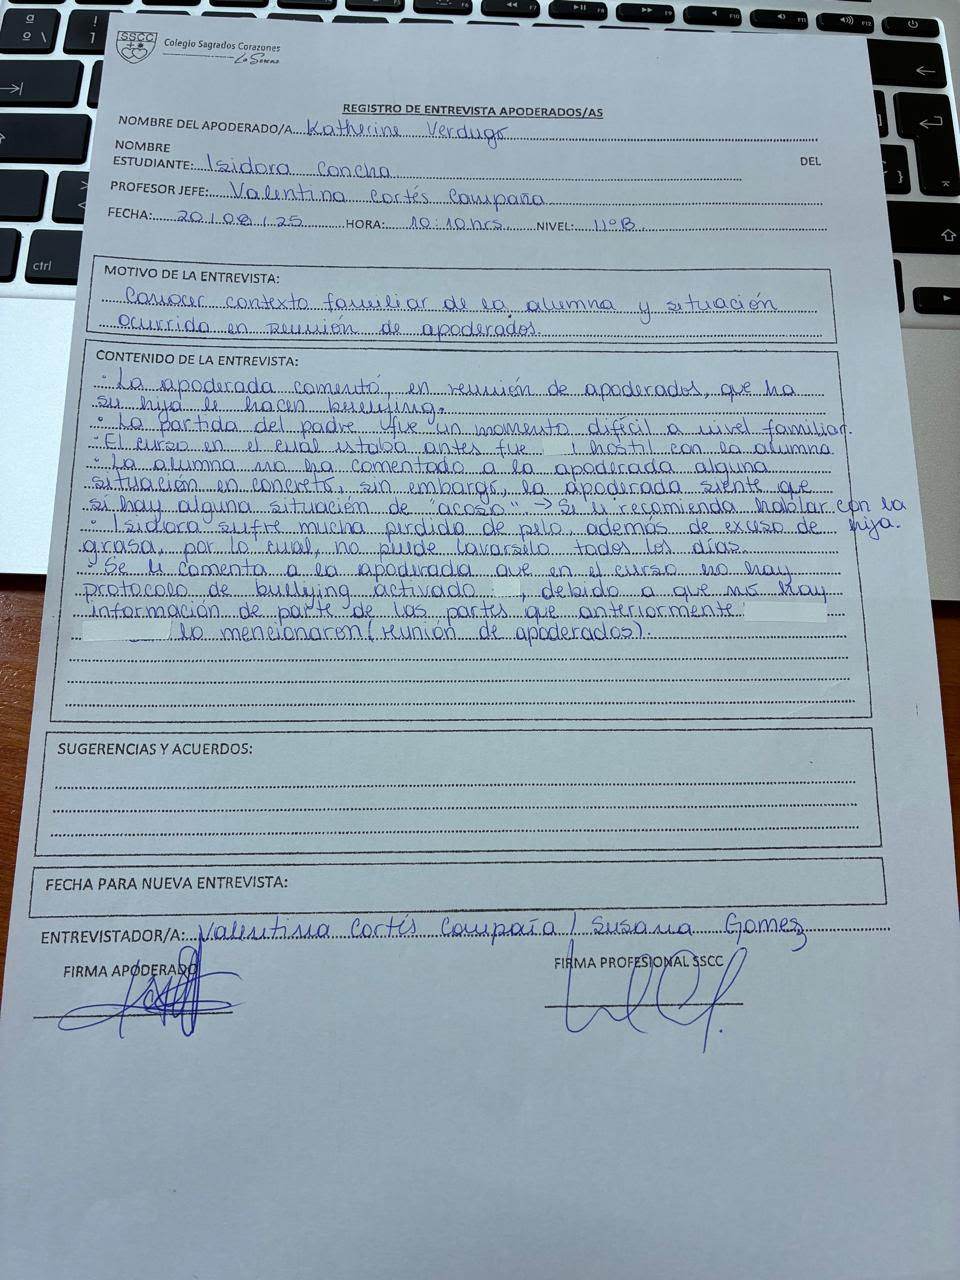 SSCC
Colegio Sagrados Corazones
La Serena
REGISTRO DE ENTREVISTA APODERADOS/AS
NOMBRE DEL APODERADO/A Katherine Verdugo
NOMBRE DEL
ESTUDIANTE: Isidora Concha
PROFESOR JEFE: Valentina Cortés Campaña
FECHA: 20/08/25 HORA: 10:10 hrs. NIVEL: II°B
MOTIVO DE LA ENTREVISTA:
Conocer contexto familiar de la alumna y situación
ocurrida en reunión de apoderados.
CONTENIDO DE LA ENTREVISTA:
· La apoderada comentó, en reunión de apoderados, que ha
su hija le hacen bullying.
· La partida del padre fue un momento difícil a nivel familiar.
· El curso en el cual estaba antes fue hostil con la alumna
· La alumna no ha comentado a la apoderada alguna
situación en concreto, sin embargo, la apoderada siente que
si hay alguna situación de "acoso" → Se le recomienda hablar con la
hija.
· Isidora sufre mucha perdida de pelo, además de exceso de
grasa, por lo cual, no puede lavarselo todos los días.
· Se le comenta a la apoderada que en el curso no hay
protocolo de bullying activado , debido a que no hay
información de parte de las partes que anteriormente
lo mencionaron (reunión de apoderados).
SUGERENCIAS Y ACUERDOS:
FECHA PARA NUEVA ENTREVISTA:
ENTREVISTADOR/A: Valentina Cortés Campaña / Susana Gomez
FIRMA APODERADO FIRMA PROFESIONAL SSCC
ctrl